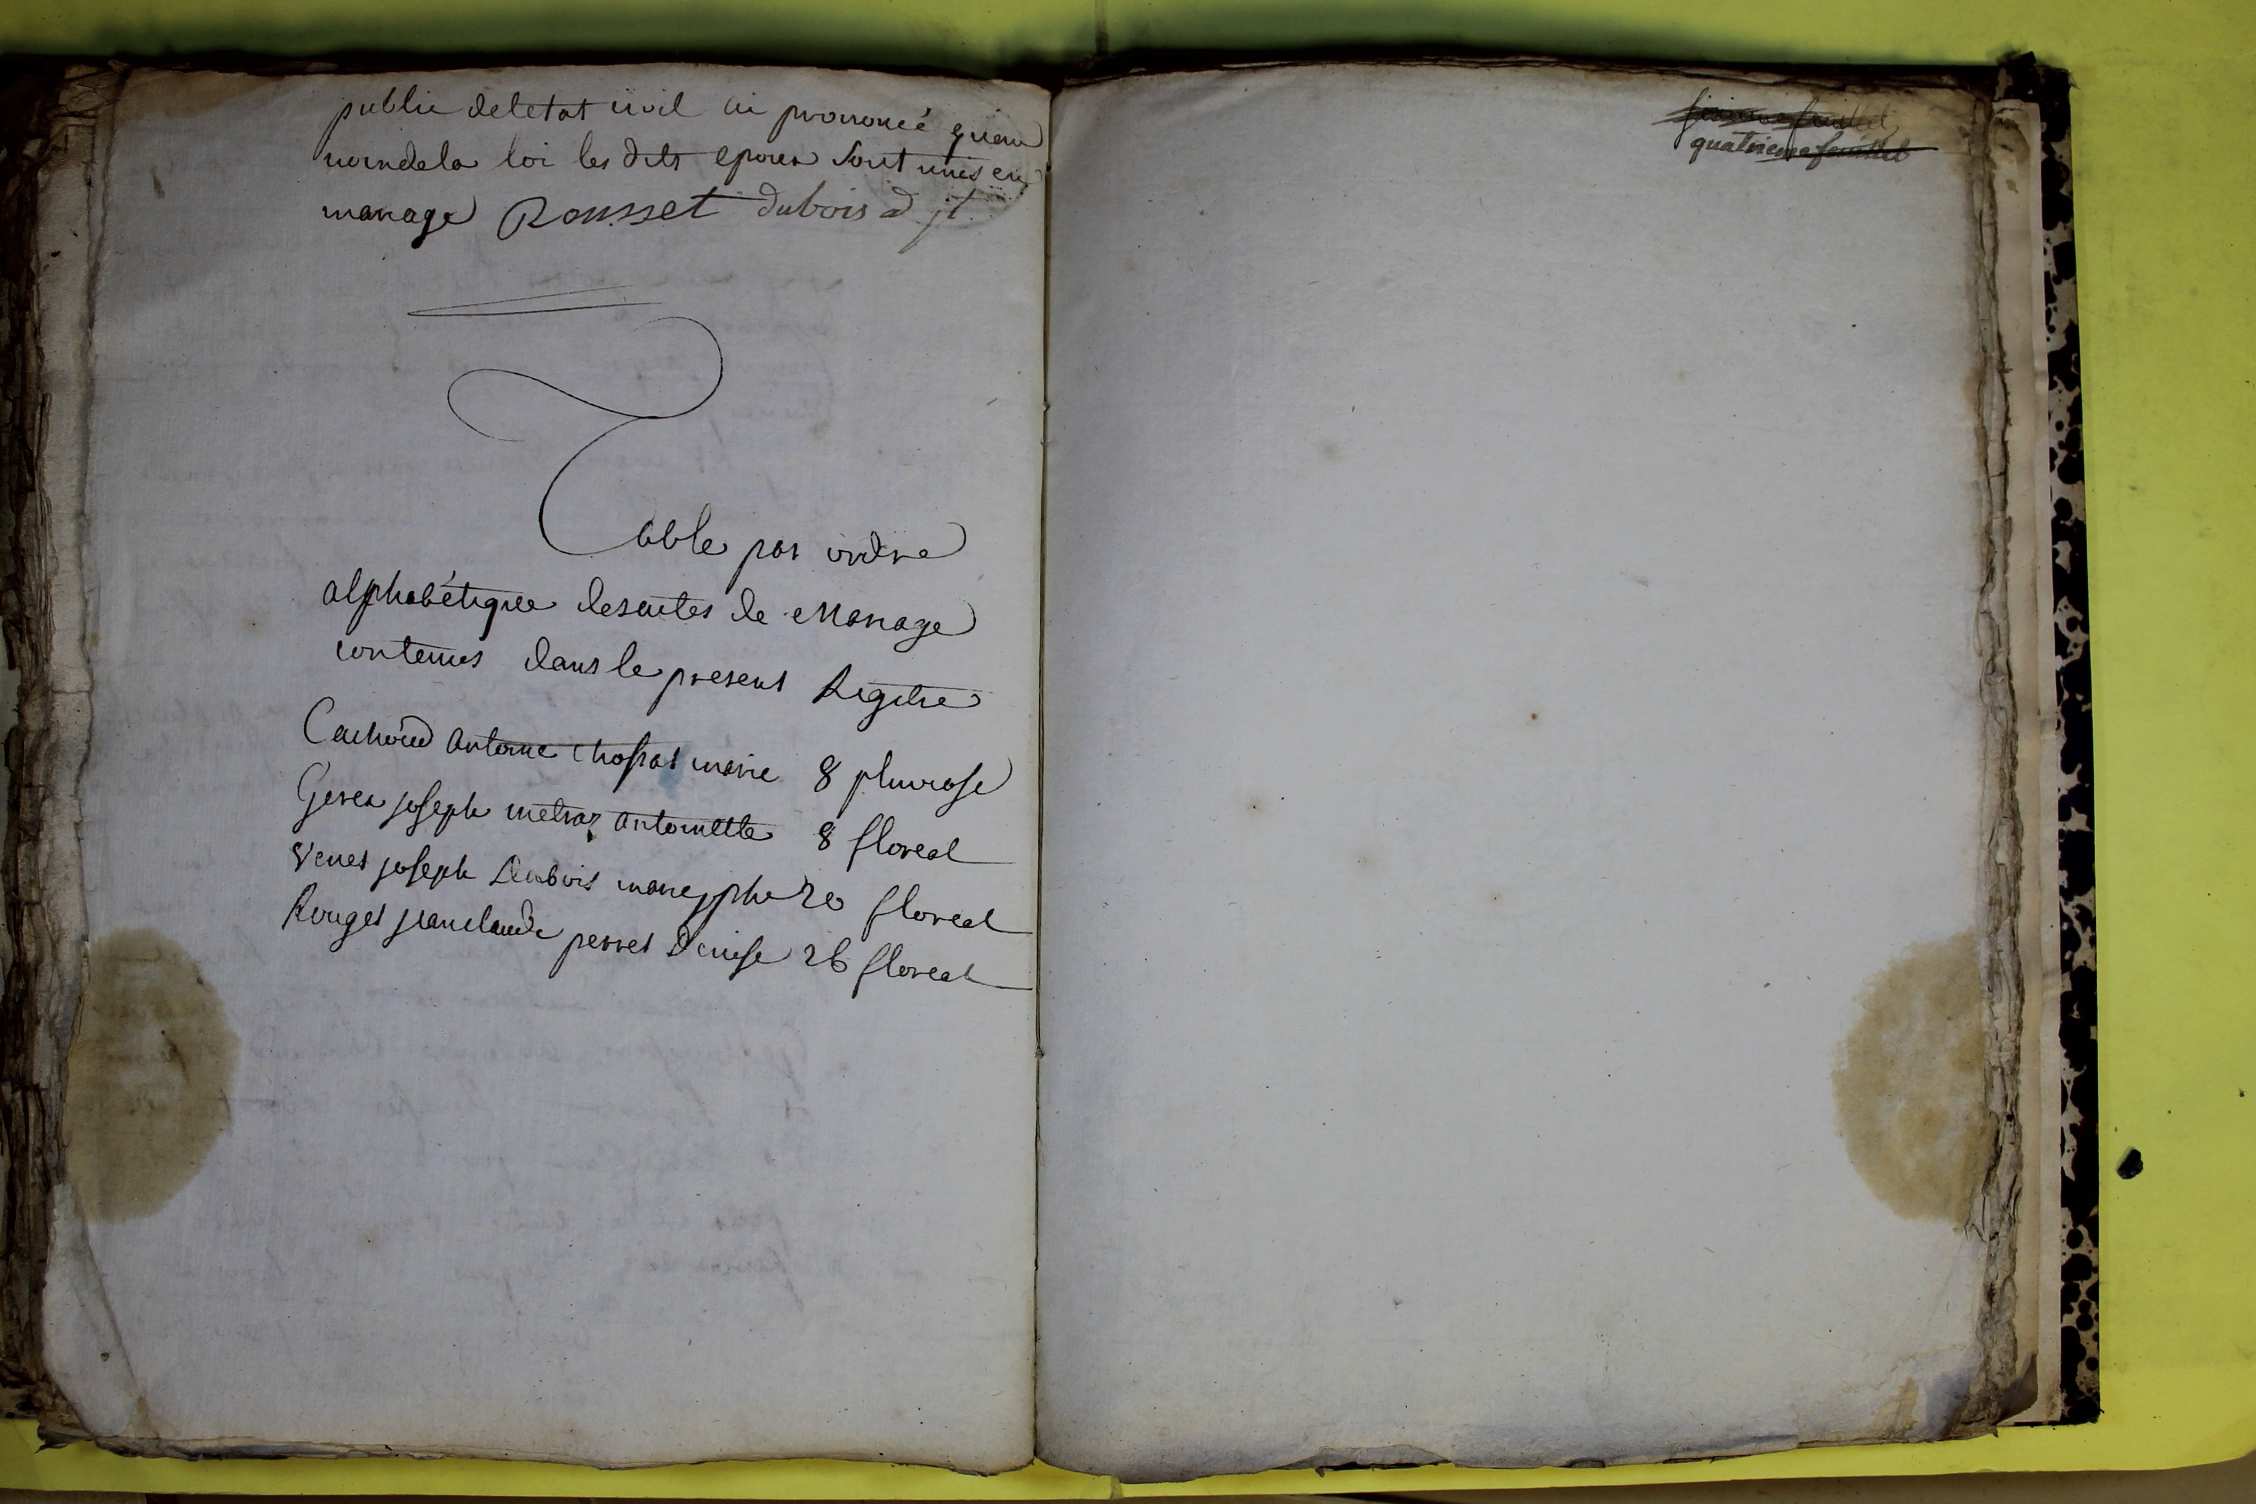 public de letat civil ai prononcé quau
nom de la loi les dits epoux sont unis en
mariage Rousset dubois adjt
Table par ordre
alphabétique des actes de Mariage
contenus dans le present Registre
Cachoud antoine chossat marie 8 pluviose
Gerex joseph metraz antoinette 8 floreal
Venet joseph Dubois marie jphe 20 floreal
Rouget jean claude perret Denise 26 floreal
feuillet
quatrieme feuillet